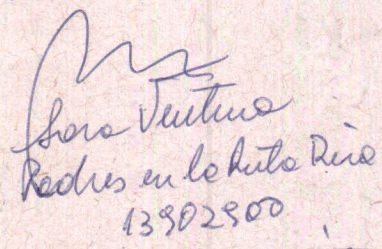 Sara Ventura
Padres en la Ruta
13902900